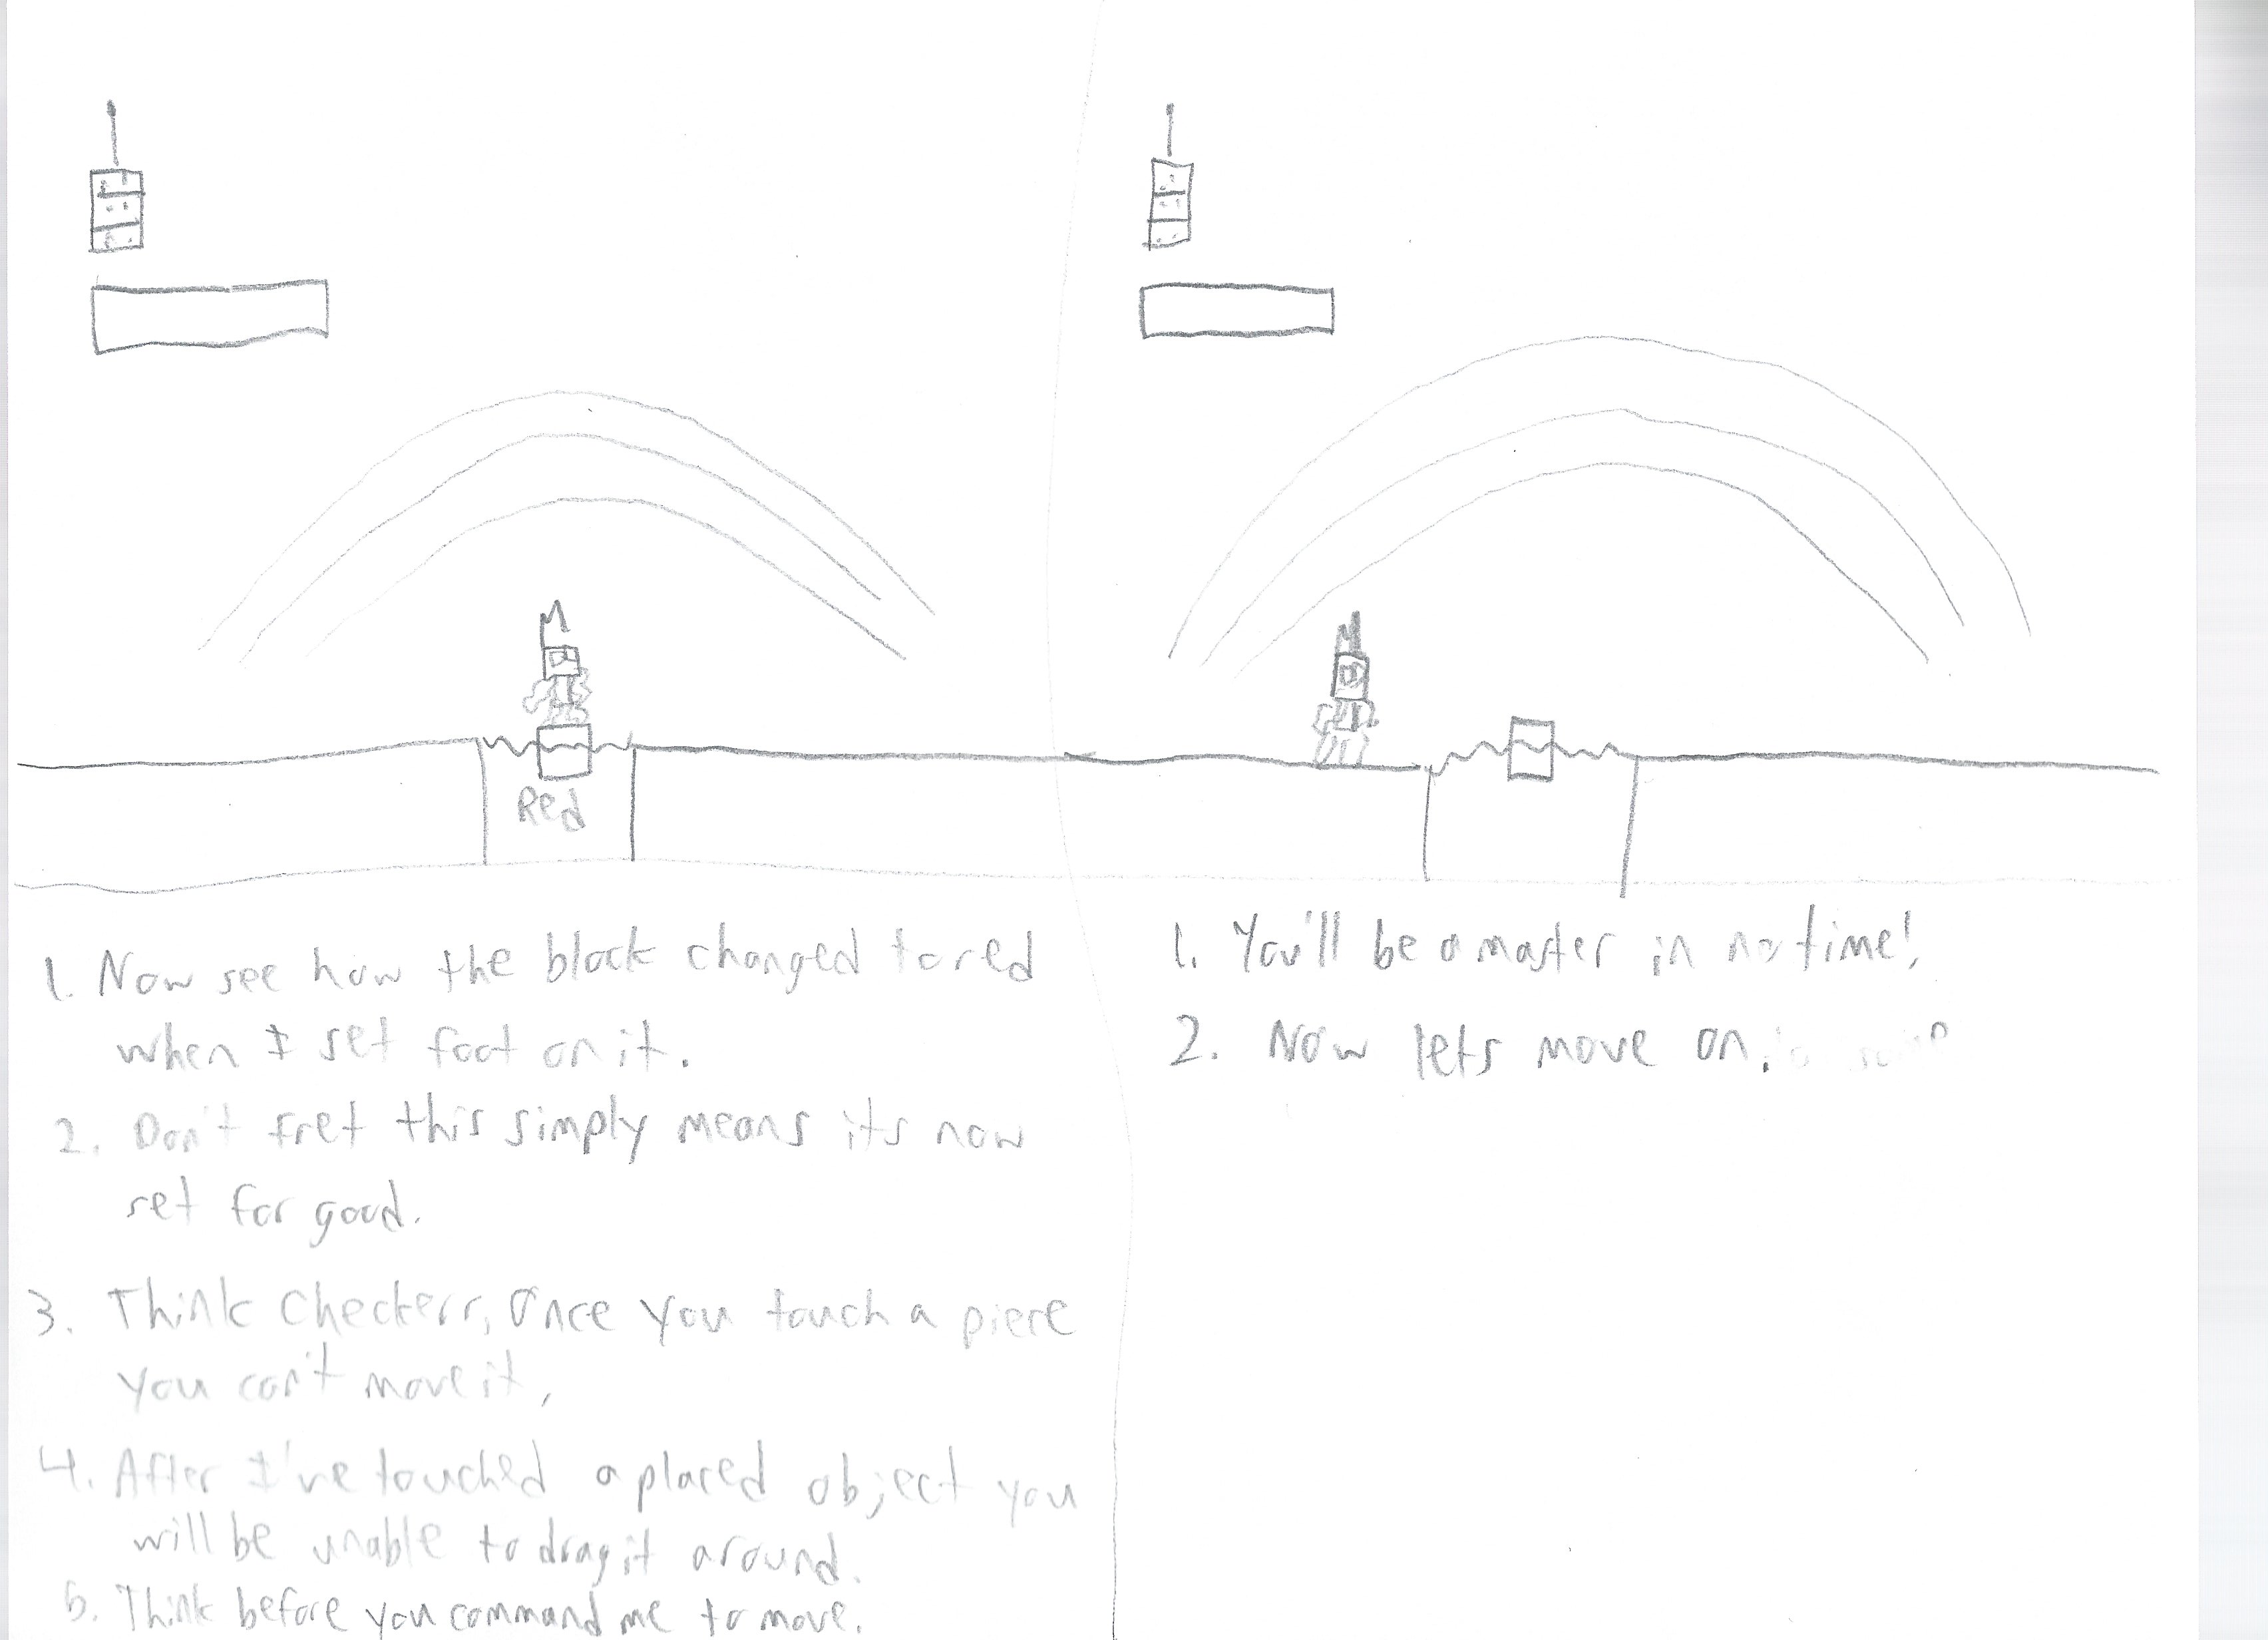 Red
1. Now see how the block changed to red
when I set foot on it.
2. Don't fret this simply means its now
set for good.
3. Think Checkers, Once you touch a piece
you can't move it,
4. After I've touched a placed object you
will be unable to drag it around.
5. Think before you command me to move.
1. You'll be a master in no time!
2. Now lets move on.